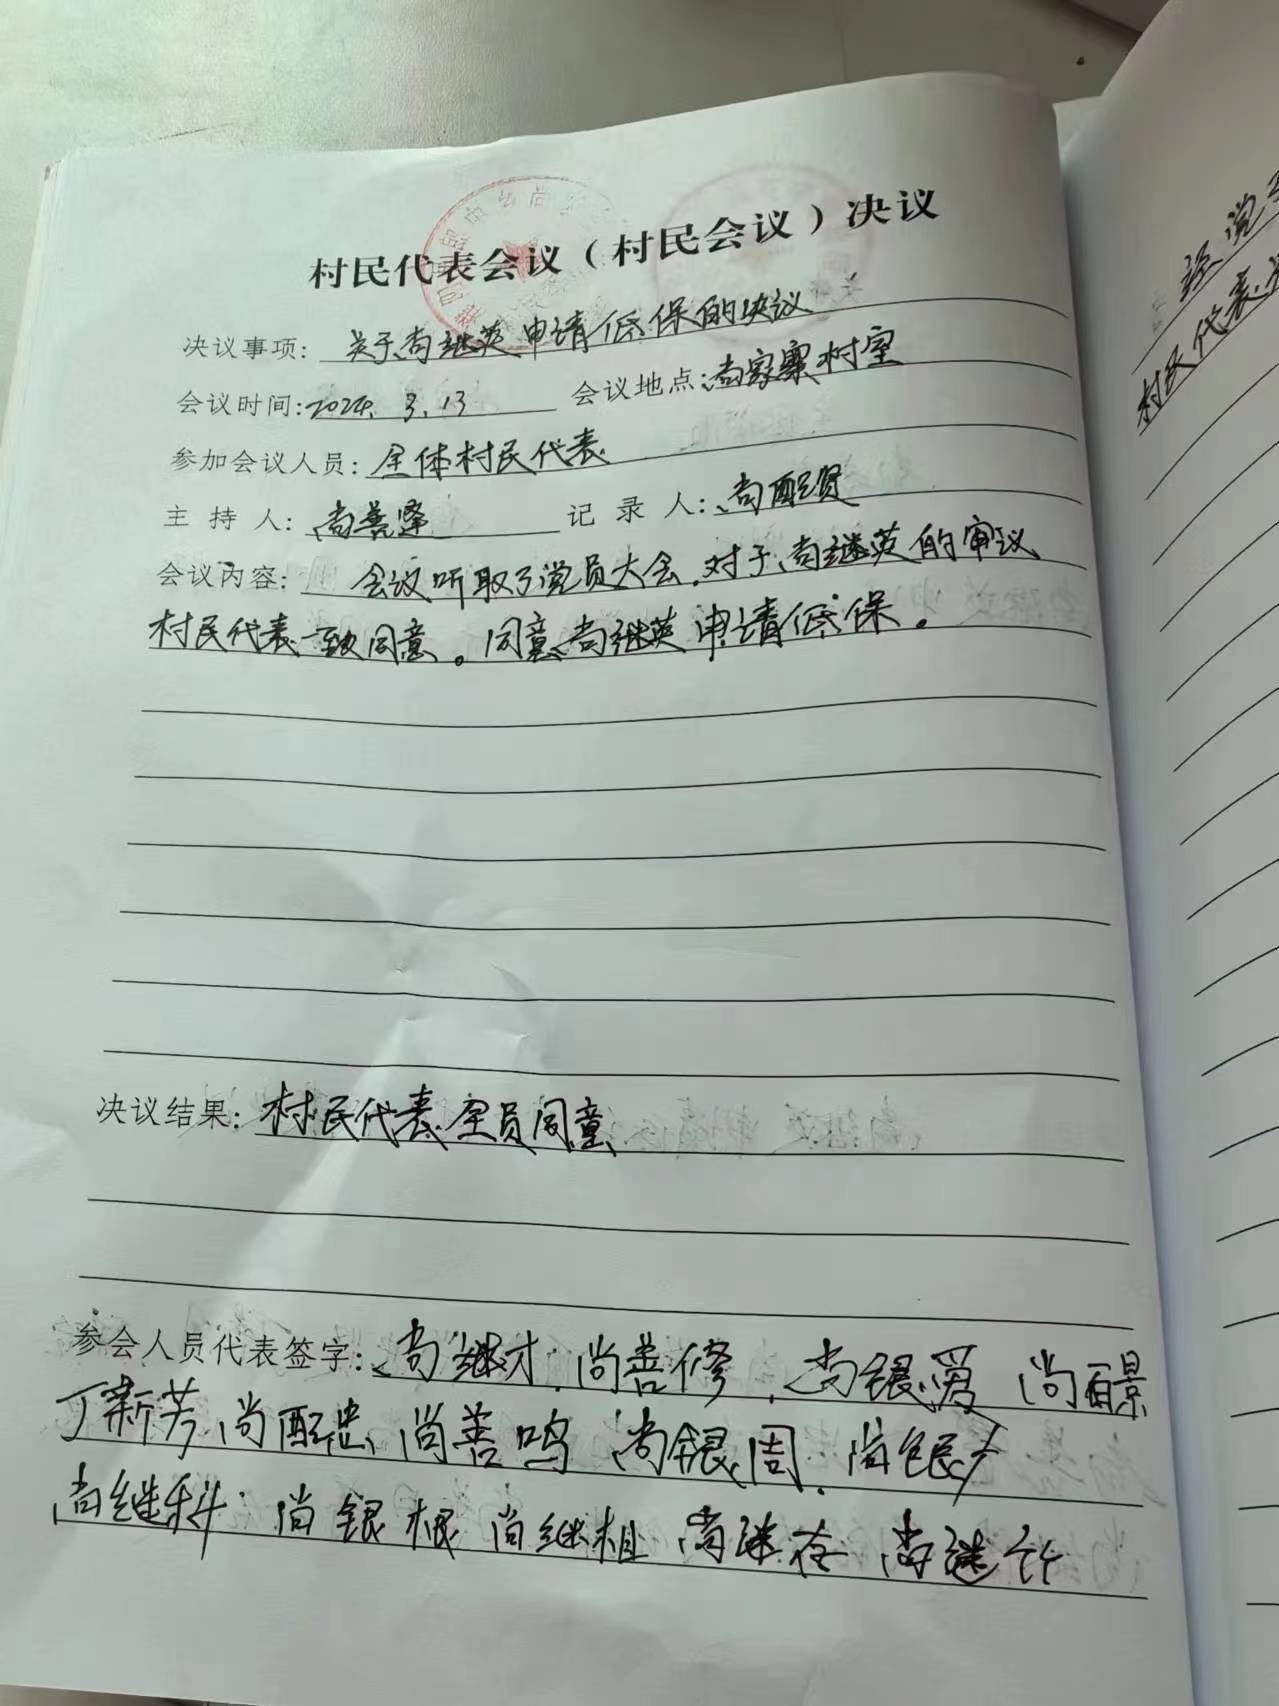 村民代表会议（村民会议）决议
决议事项：关于尚继英申请低保的决议
会议时间：2024.3.13 会议地点：尚家寨村室
参加会议人员：全体村民代表
主持人：尚善泽 记录人：尚配贤
会议内容：会议听取了党员大会，对于尚继英的审议
村民代表一致同意。同意尚继英申请低保。
决议结果：村民代表全员同意
参会人员代表签字：尚继才，尚善修，尚银爱
丁新芳 尚配忠 尚善鸣 尚银周
尚继科 尚银根 尚继相 尚继存
村民代表